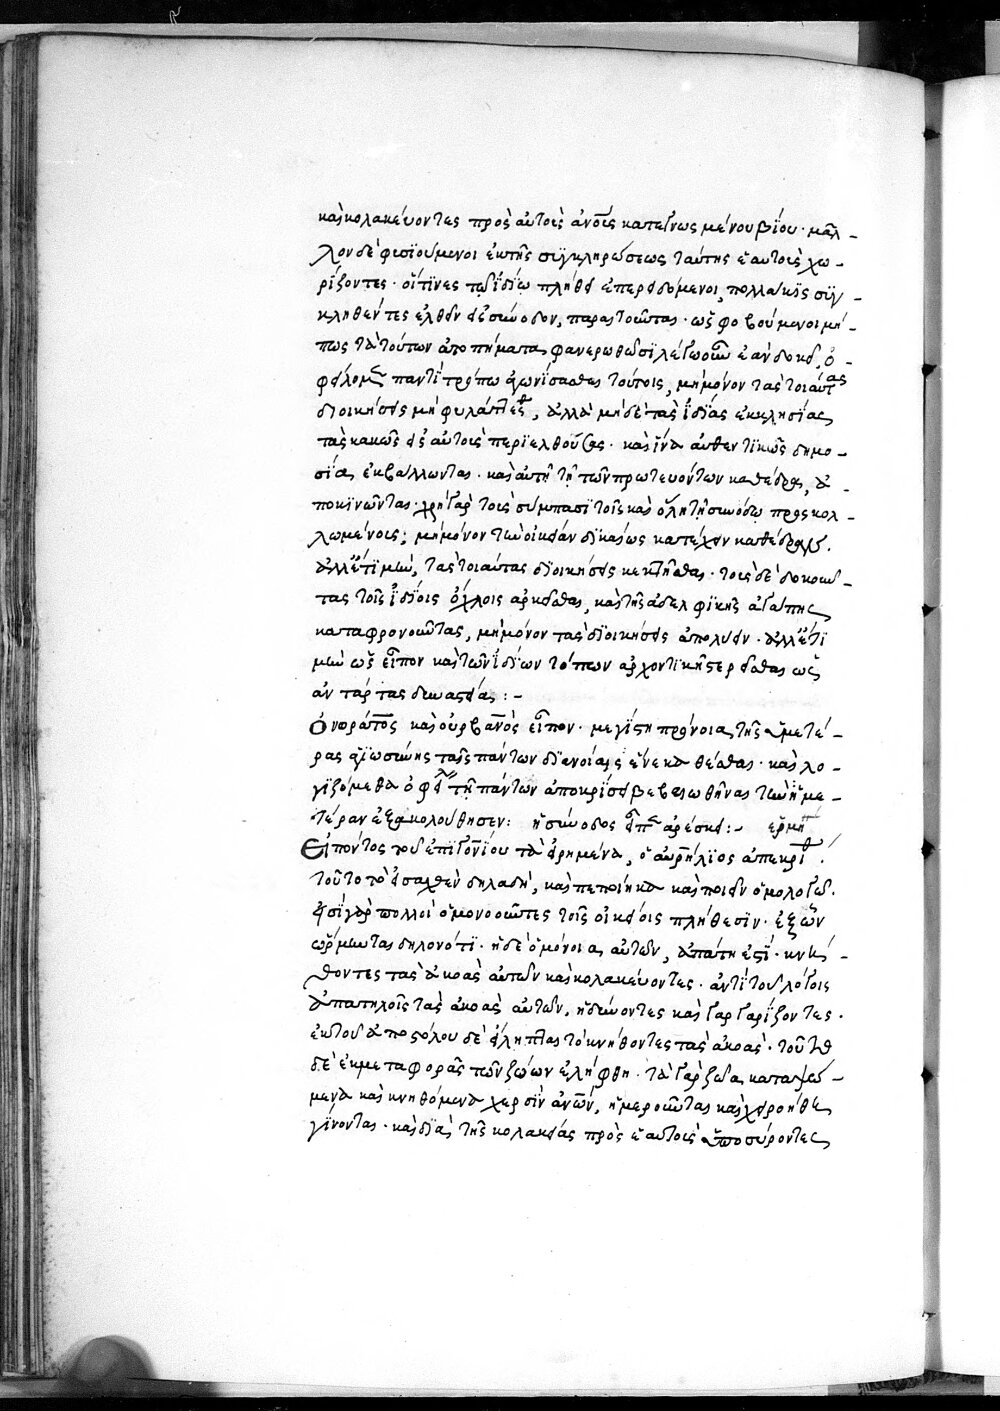 καὶ κολακεύοντες πρὸς αὐτοὺς ἀνοις κατεγνωσμένου βίου· μᾶλ-
λον δὲ φυσιούμενοι ἐκ τῆς συγκληρώσεως ταύτης ἑαυτοὺς χω-
ρίζοντες· οἵτινες τῷ ἰδίω πλήθει ἐπερειδόμενοι, πολλάκις συγ-
κληθέντες ἐλθεῖν εἰς σύνοδον, παραιτοῦνται· ὡς φοβούμενοι μή-
πως τὰ τούτων ἀτοπήματα φανερωθῶσι λέγω οὖν ἐὰν δοκεῖ, ὀ-
φείλομεν παντὶ τρόπω ἀγωνίσασθαι τούτοις, μὴ μόνον τὰς τοιαύτας
διοικήσεις μὴ φυλάττεσθαι, ἀλλὰ μηδὲ τὰς ἰδίας ἐκκλησίας
τὰς κακῶς εἰς αὐτοὺς περιελθούσας· καὶ ἵνα αὐθεντικῶς δημο-
σία ἐκβάλλωνται· καὶ αὐτῆ τῆ τῶν πρωτευόντων καθέδρα, ἀ-
ποκινῶνται· χρὴ γὰρ τοὺς σύμπασι τοῖς καὶ ὅλη τῆ συνόδω προσκολ-
λωμένοις; μὴ μόνον τὴν οἰκείαν δικαίως κατέχειν καθέδραν.
ἀλλ' ἔτι μὴν, τὰς τοιαύτας διοικήσεις κεκτῆσθαι· τοὺς δὲ δοκοῦν-
τας τοῖς ἰδίοις ὄχλοις ἀρκεῖσθαι, καὶ τῆς ἀδελφικῆς ἀγάπης
καταφρονοῦντας, μὴ μόνον τὰς διοικήσεις ἀπολύειν· ἀλλ' ἔτι
μὴν ὡς εἶπον καὶ τῶν ἰδίων τόπων ἀρχοντικῆ στερεῖσθαι ὡς
ἀντάρτας δυναστεία:-
Ονωράτος καὶ οὐρβανὸς εἶπον· μεγίστη πρόνοια τῆς ὑμετέ-
ρας ἁγιωσύνης ταῖς πάντων διανοίαις ἕνεκα θέσθαι· καὶ λο-
γιζόμεθα ὀφείλειν τῆ πάντων ἀποκρίσει βεβαιωθῆναι τὴν ἡμε-
τέραν ἐξακολούθησιν: ἡ σύνοδος εἶπεν ἀρέσκει:- ερμη
Ειπόντος τοῦ ἐπιγονίου τὰ εἰρημένα, ὁ αὐρήλιος ἀπεκρίθ.
τοῦτο τὸ εἰσαχθὲν δηλαδὴ, καὶ πεποίηκα καὶ ποιεῖν ὁμολογῶ.
εἰσὶ γὰρ πολλοὶ ὁμονοοῦντες τοῖς οἰκείοις πλήθεσιν· ἐξ ὧν
ὥρμηνται δηλονότι· ἡ δὲ ὁμόνοια αὐτῶν, ἀπάτη ἐστί· κνή-
θοντες τὰς ἀκοὰς αὐτῶν καὶ κολακεύοντες· ἀντὶ τοῦ λόγοις
ἀπατηλοῖς τὰς ἀκοὰς αὐτῶν, ἡδύνοντες καὶ γαργαρίζοντες.
ἐκ τοῦ ἀποστόλου δὲ εἴληπται τὸ κνήθοντες τὰς ἀκοάς· τοῦτο
δὲ ἐκ μεταφορᾶς τῶν ζώων ἐλήφθη· τὰ γὰρ ζῶα καταψώ-
μενα καὶ κνηθόμενα χερσὶν ἀνων, ἡμεροῦνται καὶ χειροήθη
γίνονται· καὶ διὰ τῆς κολακείας πρὸς ἑαυτοὺς ὑποσύροντες